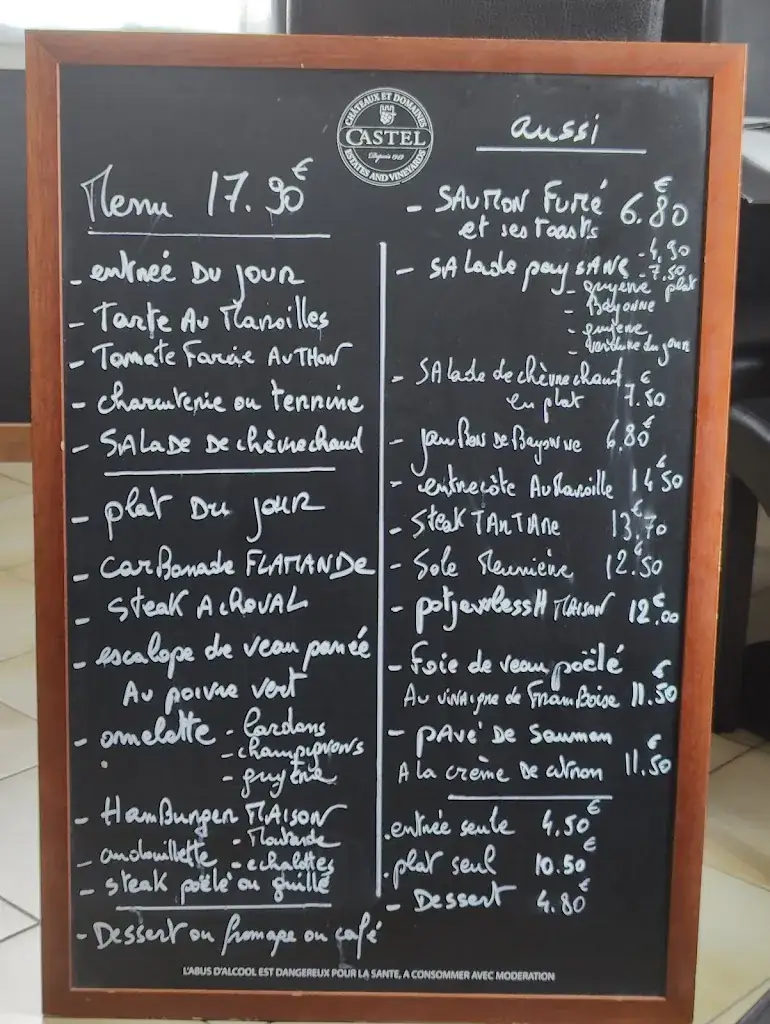 CHÂTEAUX ET DOMAINES
CASTEL
Depuis 1949
ESTATES AND VINEYARDS
Menu 17.90€
- entrée DU jour
- Tarte Au Maroilles
- Tomate Farcie AuTHON
- charcuterie ou terrine
- SALADE De chèvre chaud
- plat Du jour
- carBonade FLAMANDe
- Steak A ChVAL
- escalope de veau panée
Au poivre vert
- omelette - lardons
- champignons
- guyère
- HamBurger MAISON
- andouillette - Moutarde
- echalottes
- steak poëlé ou grillé
- Dessert ou fromage ou café
aussi
- SAUMON Fumé 6.80€
et ses toasts
- SAlade paySANe - 4.90
- 7.50
- guyère plat
- Bayonne
- guyère
- verdure du jour
- SAlade de chèvre chaud
en plat 7.50€
- jamBon de Bayonne 6.80€
- entrecôte Au Maroille 14.50€
- Steak TArTARe 13.70€
- Sole Meunière 12.50€
- potjevleesH MAISON 12.00€
- Foie de veau poëlé
Au vinaigre de FramBoise 11.50€
- pAvé De Saumon
A la crème De citron 11.50€
. entrée seule 4.50€
. plat seul 10.50€
- Dessert 4.80€
L'ABUS D'ALCOOL EST DANGEREUX POUR LA SANTE, A CONSOMMER AVEC MODERATION